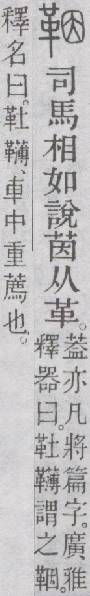 鞇司馬相如說茵从革。葢亦凡將篇字。廣雅
釋器曰。靯䪙謂之鞇。
釋名曰。靯䪙、車中重薦也。